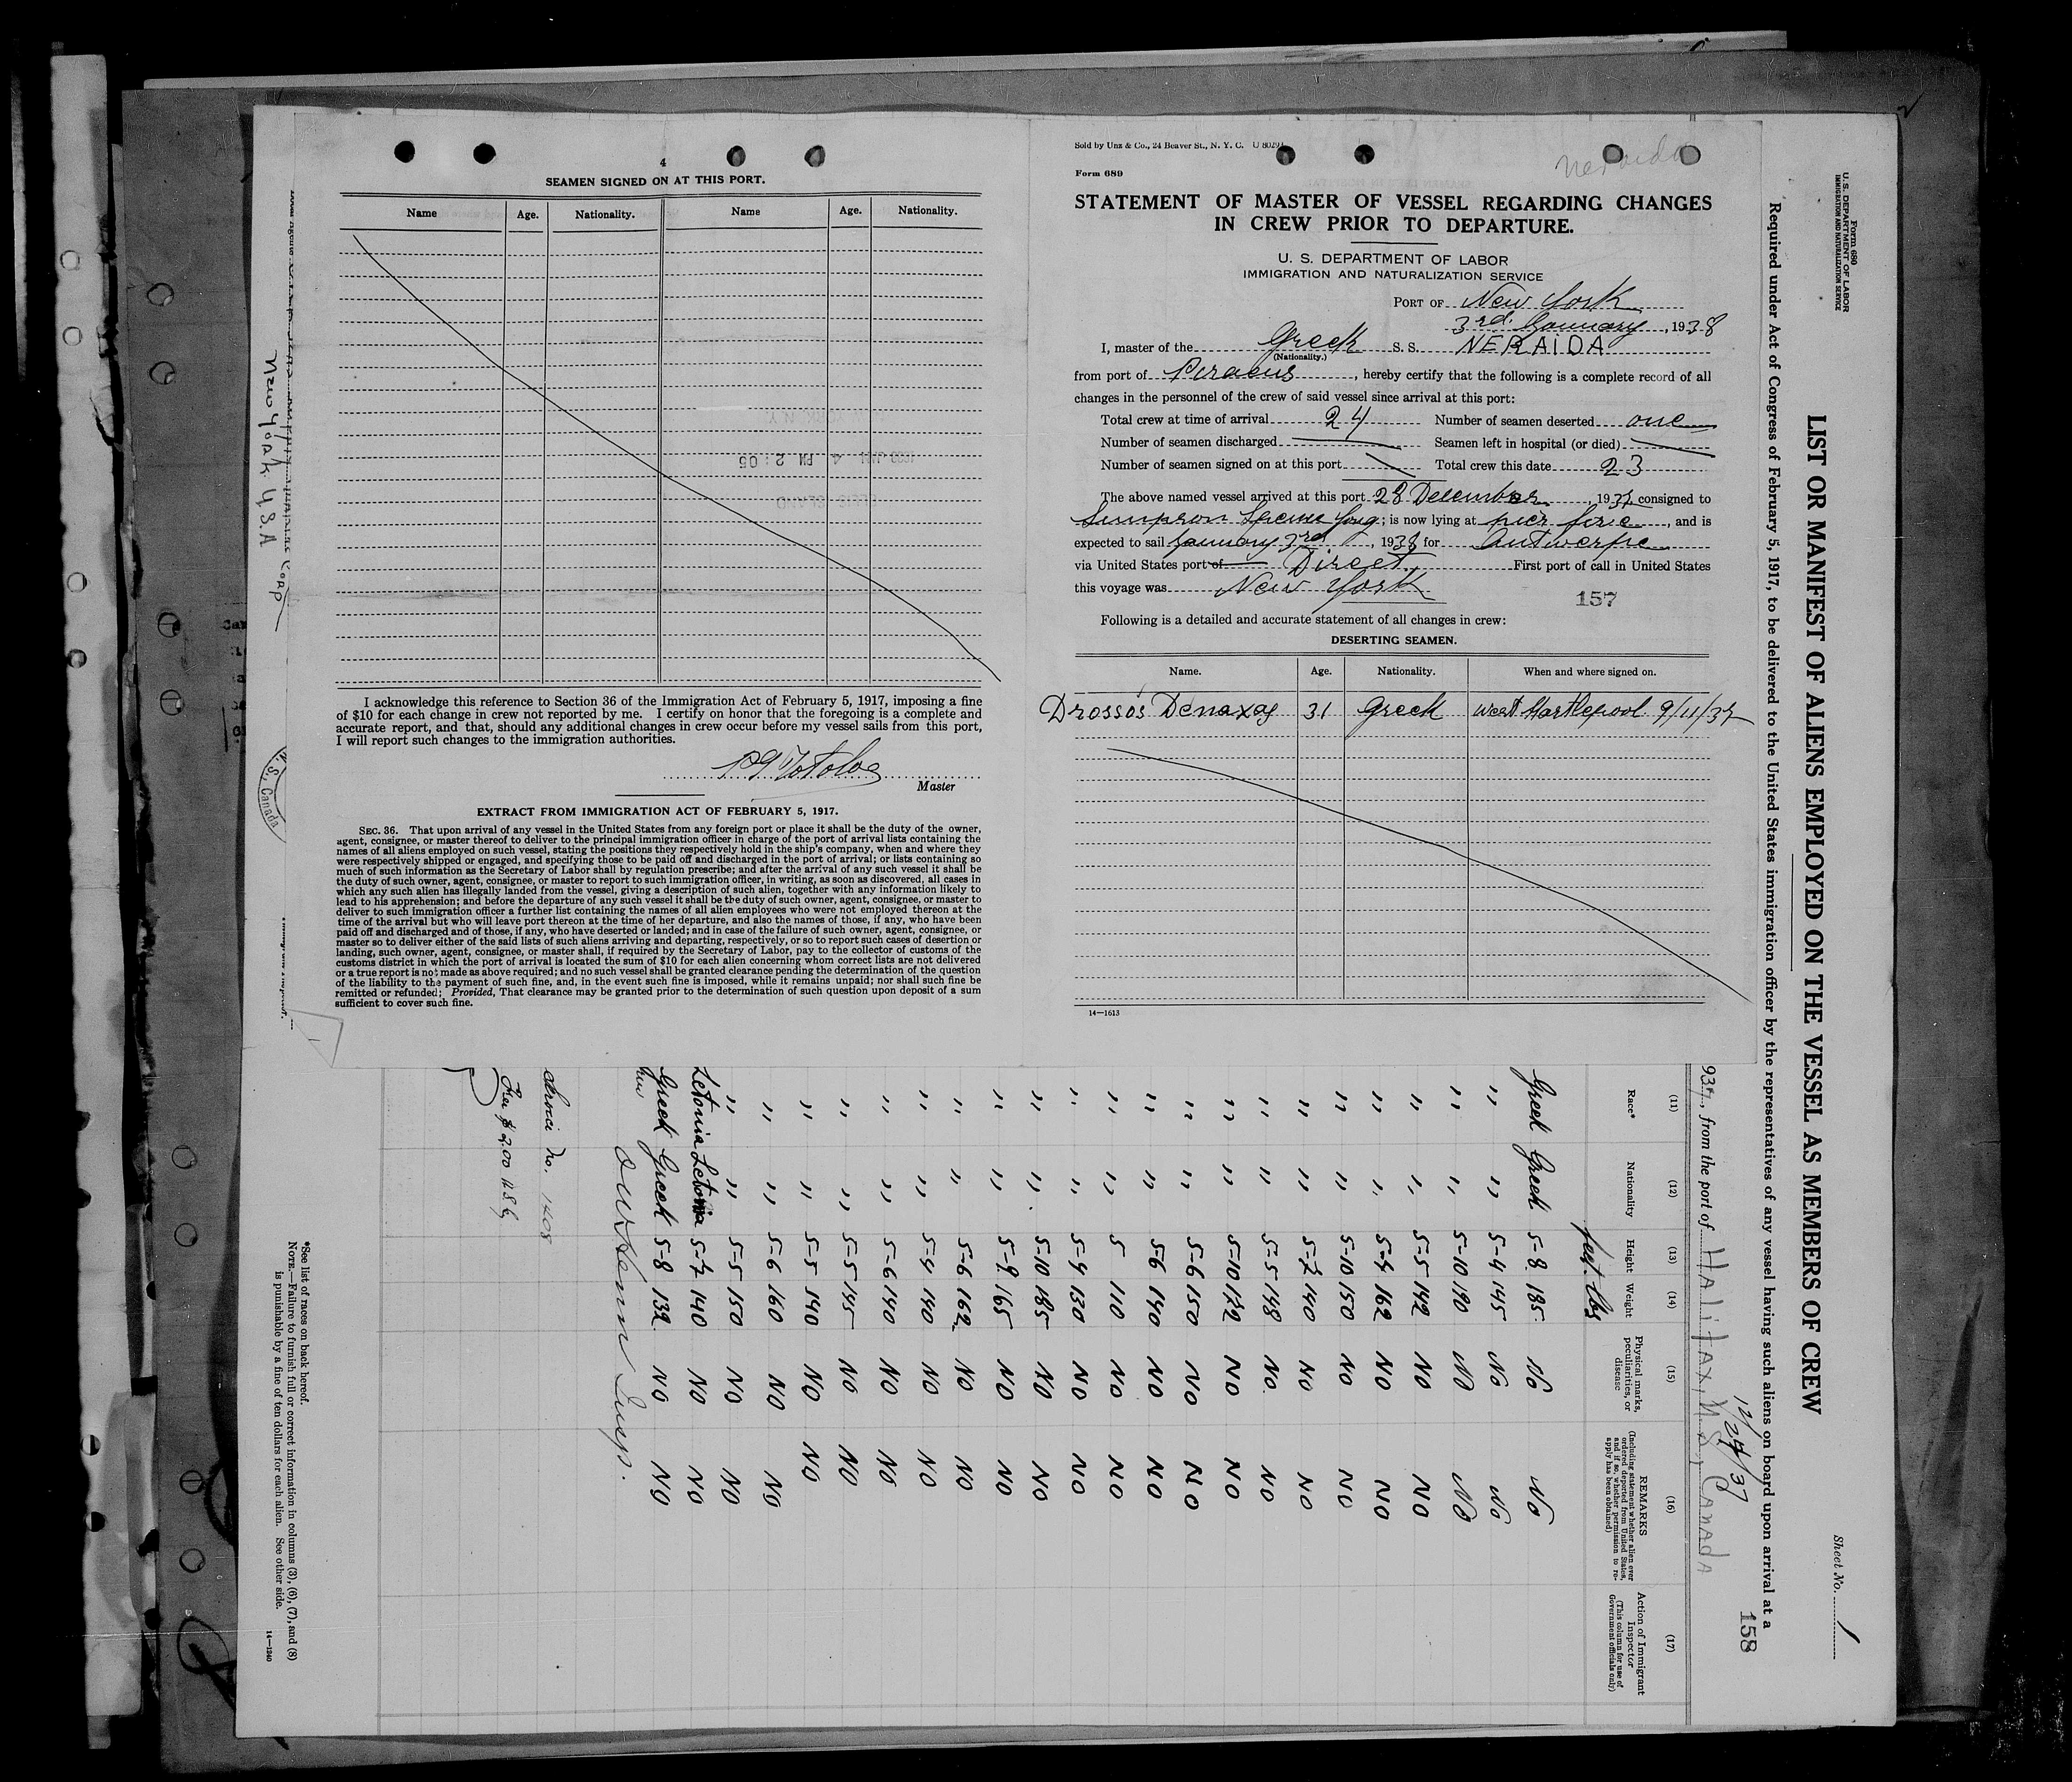 4
SEAMEN SIGNED ON AT THIS PORT.
Name Age. Nationality. Name Age. Nationality.
1938 JAN 4 PM 2:05
ELLIS ISLAND
I acknowledge this reference to Section 36 of the Immigration Act of February 5, 1917, imposing a fine
of $10 for each change in crew not reported by me. I certify on honor that the foregoing is a complete and
accurate report, and that, should any additional changes in crew occur before my vessel sails from this port,
I will report such changes to the immigration authorities.
Master
EXTRACT FROM IMMIGRATION ACT OF FEBRUARY 5, 1917.
SEC. 36. That upon arrival of any vessel in the United States from any foreign port or place it shall be the duty of the owner,
agent, consignee, or master thereof to deliver to the principal immigration officer in charge of the port of arrival lists containing the
names of all aliens employed on such vessel, stating the positions they respectively hold in the ship's company, when and where they
were respectively shipped or engaged, and specifying those to be paid off and discharged in the port of arrival; or lists containing so
much of such information as the Secretary of Labor shall by regulation prescribe; and after the arrival of any such vessel it shall be
the duty of such owner, agent, consignee, or master to report to such immigration officer, in writing, as soon as discovered, all cases in
which any such alien has illegally landed from the vessel, giving a description of such alien, together with any information likely to
lead to his apprehension; and before the departure of any such vessel it shall be the duty of such owner, agent, consignee, or master to
deliver to such immigration officer a further list containing the names of all alien employees who were not employed thereon at the
time of the arrival but who will leave port thereon at the time of her departure, and also the names of those, if any, who have been
paid off and discharged and of those, if any, who have deserted or landed; and in case of the failure of such owner, agent, consignee, or
master so to deliver either of the said lists of such aliens arriving and departing, respectively, or so to report such cases of desertion or
landing, such owner, agent, consignee, or master shall, if required by the Secretary of Labor, pay to the collector of customs of the
customs district in which the port of arrival is located the sum of $10 for each alien concerning whom correct lists are not delivered
or a true report is not made as above required; and no such vessel shall be granted clearance pending the determination of the question
of the liability to the payment of such fine, and, in the event such fine is imposed, while it remains unpaid; nor shall such fine be
remitted or refunded; Provided, That clearance may be granted prior to the determination of such question upon deposit of a sum
sufficient to cover such fine.
Sold by Unz & Co., 24 Beaver St., N. Y. C. U 80291
Neraida
Form 689
STATEMENT OF MASTER OF VESSEL REGARDING CHANGES
IN CREW PRIOR TO DEPARTURE.
U. S. DEPARTMENT OF LABOR
IMMIGRATION AND NATURALIZATION SERVICE
PORT OF New York
3rd January, 1938
I, master of the Greek S. S. NERAIDA
(Nationality.)
from port of Piraeus, hereby certify that the following is a complete record of all
changes in the personnel of the crew of said vessel since arrival at this port:
Total crew at time of arrival 24 Number of seamen deserted one
Number of seamen discharged Seamen left in hospital (or died)
Number of seamen signed on at this port Total crew this date 23
The above named vessel arrived at this port 28 December, 1937 consigned to
Simpson Spence Young; is now lying at pier, and is
expected to sail January 3rd, 1938 for Antwerpe
via United States port of Direct First port of call in United States
this voyage was New York
157
Following is a detailed and accurate statement of all changes in crew:
DESERTING SEAMEN.
Name. Age. Nationality. When and where signed on.
Drossos Denaxas 31 Greek West Hartlepool 9/11/37
14—1613
Form 680
U. S. DEPARTMENT OF LABOR
IMMIGRATION AND NATURALIZATION SERVICE
LIST OR MANIFEST OF ALIENS EMPLOYED ON THE VESSEL AS MEMBERS OF CREW
Sheet No. 1
Required under Act of Congress of February 5, 1917, to be delivered to the United States immigration officer by the representatives of any vessel having such aliens on board upon arrival at a
158
12/24/37
937, from the port of HALifax, N.S., CANADA
(11) (12) (13) (14) (15) (16) (17)
Race* Nationality Height Weight Physical marks, peculiarities, or disease REMARKS (Including statement whether alien ever ordered deported from United States, and if so, whether permission to reapply has been obtained) Action of Immigrant Inspector (This column for use of Government officials only)
feet lbs
Greek Greek 5-8 185 NO NO
" " 5-4 145 NO NO
" " 5-10 190 NO NO
" " 5-5 142 NO NO
" " 5-4 162 NO NO
" " 5-10 150 NO NO
" " 5-7 140 NO NO
" " 5-5 148 NO. NO
" " 5-10 172 NO NO
" " 5-6 150 NO NO
" " 5-6 140 NO NO
" " 5 110 NO NO
" " 5-4 130 NO NO
" " 5-10 185 NO NO
" " 5-9 165 NO NO
" " 5-6 162 NO NO
" " 5-4 140 NO NO
" " 5-6 140 NO NO
" " 5-5 145 NO NO
" " 5-5 140 NO NO
" " 5-6 160 NO NO
" " 5-5 150 NO NO
Letonia Letonia 5-7 140 NO NO
Greek Greek 5-8 132 NO NO
Insp.
No. 1408
Fee $2.00
*See list of races on back hereof.
NOTE.—Failure to furnish full or correct information in columns (3), (6), (7), and (8)
is punishable by a fine of ten dollars for each alien. See other side.
14—1240
New York U.S.A
Corp
N. S., Canada